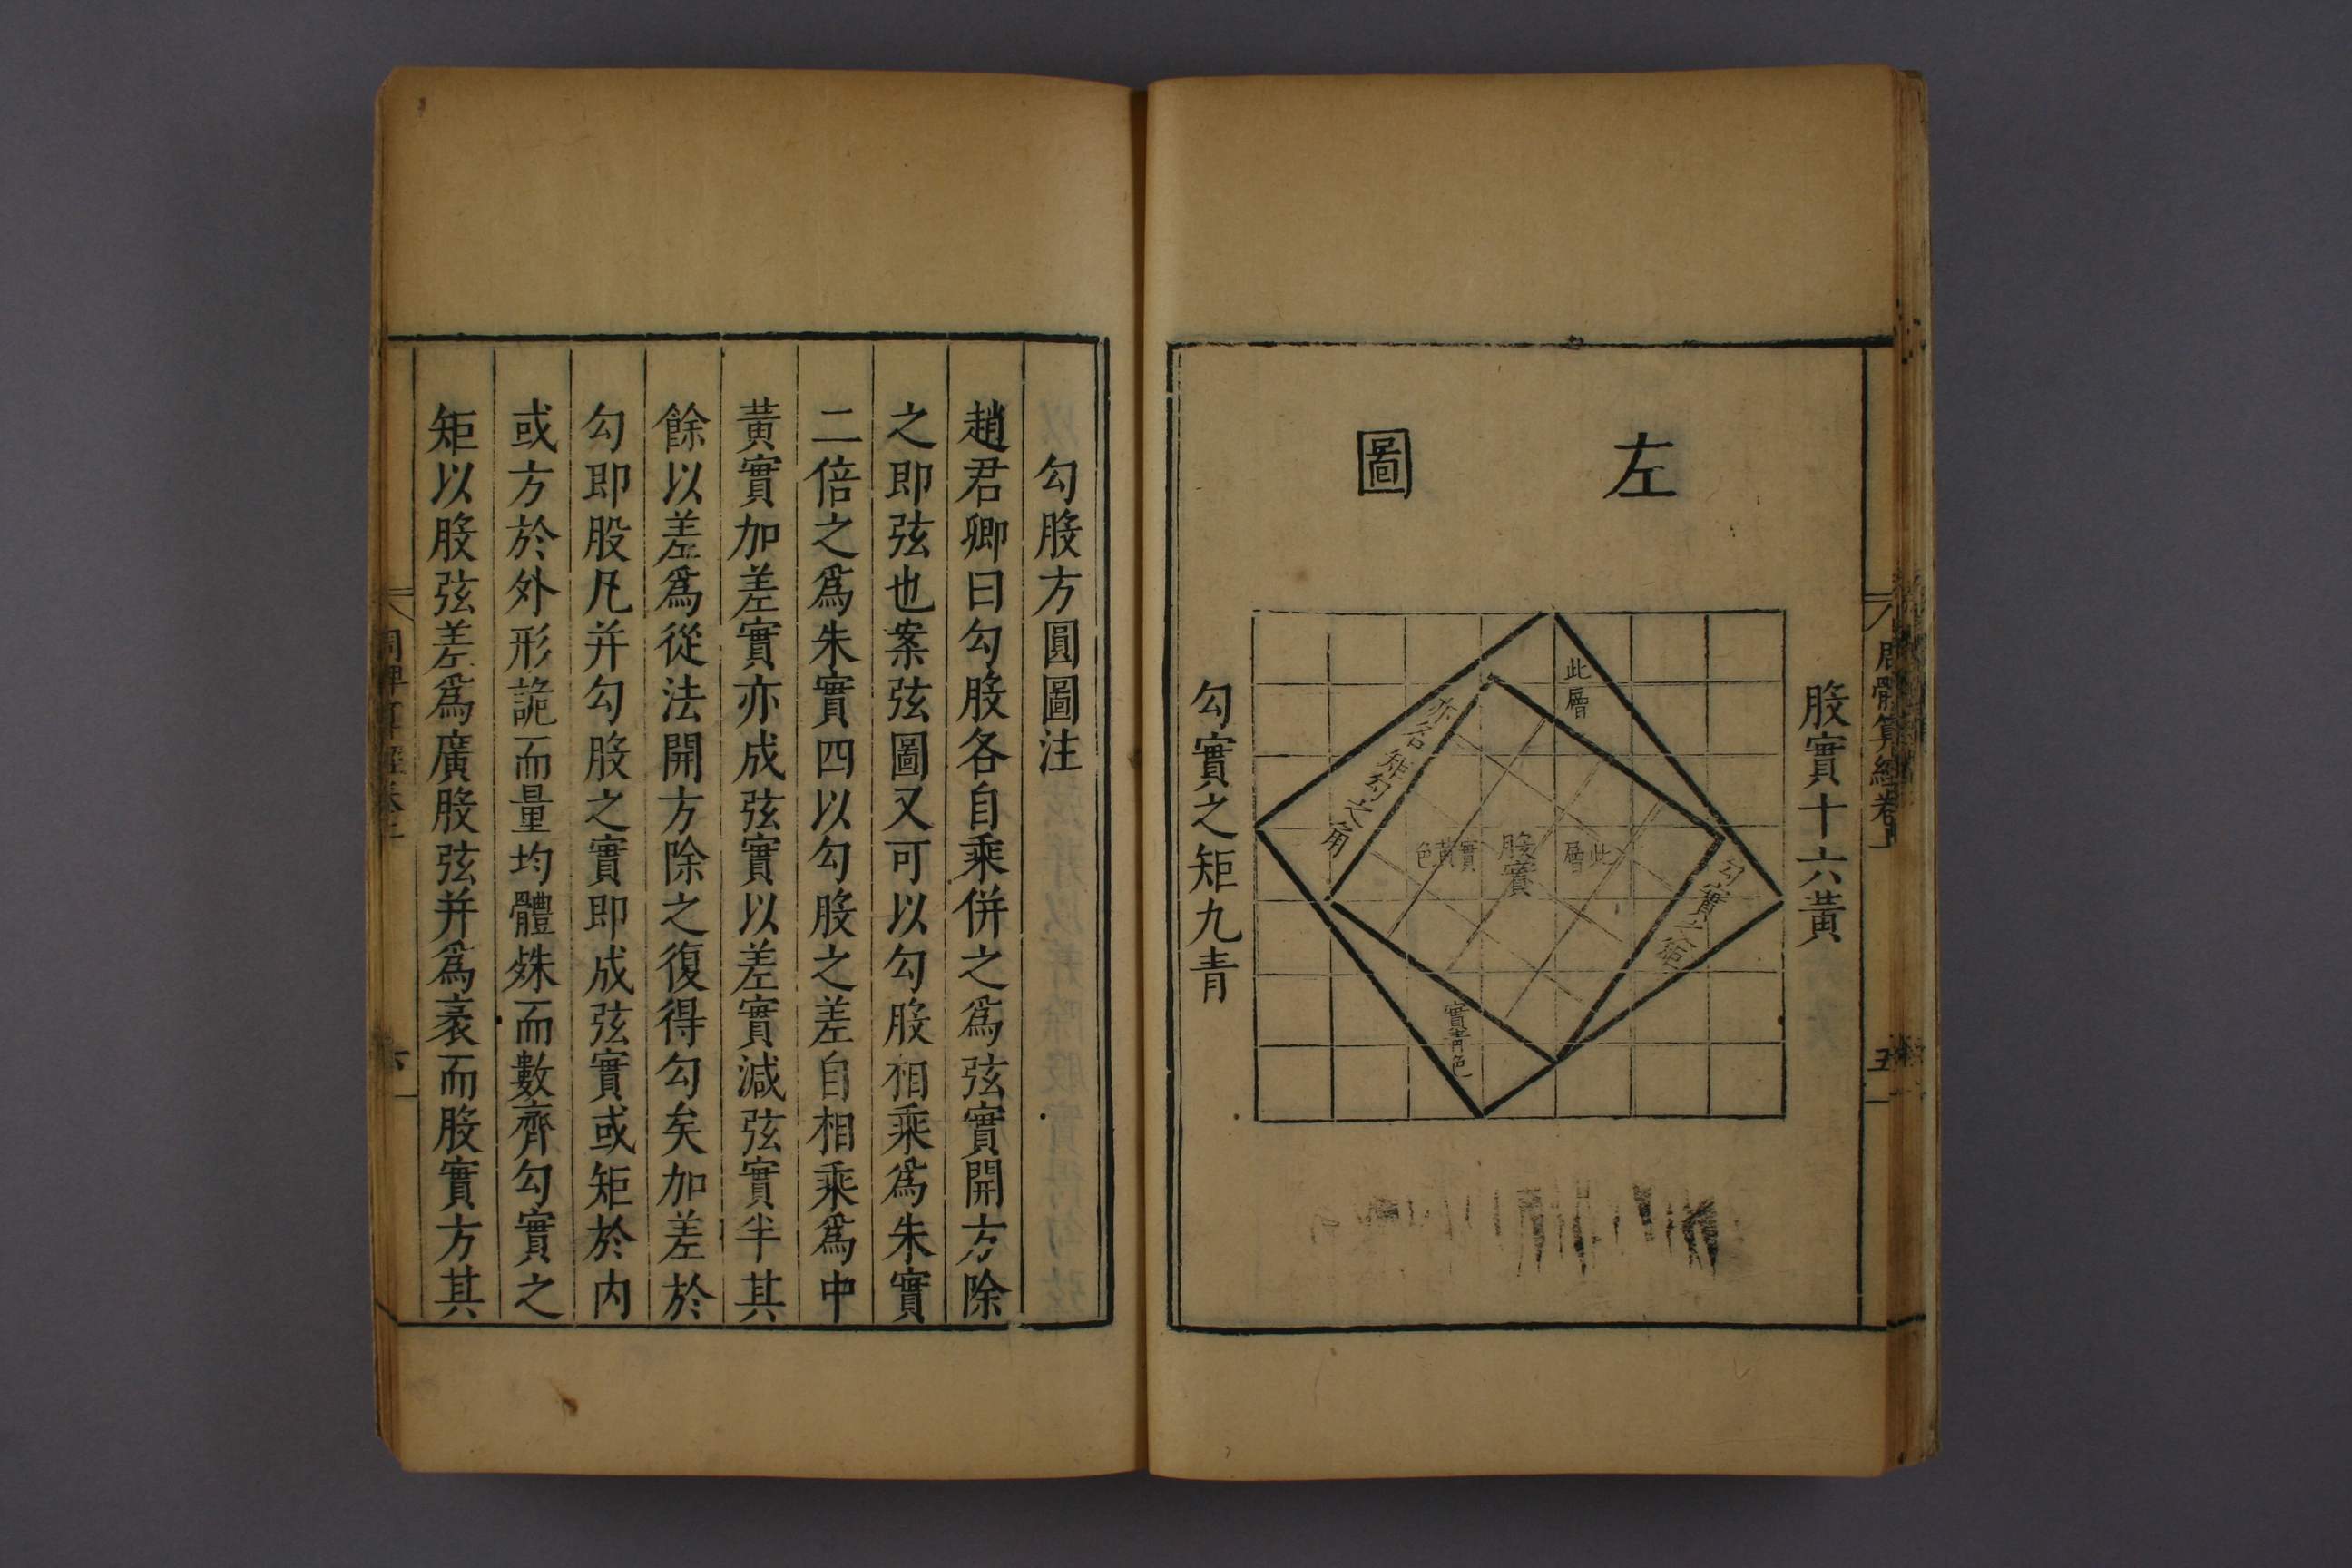 周髀算經卷上
五
左圖
股實十六黃
此層
亦名矩勾之角
股實
此層
實黃色
勾實之矩
實青色
勾實之矩九青
勾股方圓圖注
趙君卿曰勾股各自乘併之爲弦實開方除
之即弦也案弦圖又可以勾股相乘爲朱實
二倍之爲朱實四以勾股之差自相乘爲中
黃實加差實亦成弦實以差實減弦實半其
餘以差爲從法開方除之復得勾矣加差於
勾即股凡并勾股之實即成弦實或矩於內
或方於外形詭而量均體殊而數齊勾實之
矩以股弦差爲廣股弦并爲袤而股實方其
周髀算經卷上
六